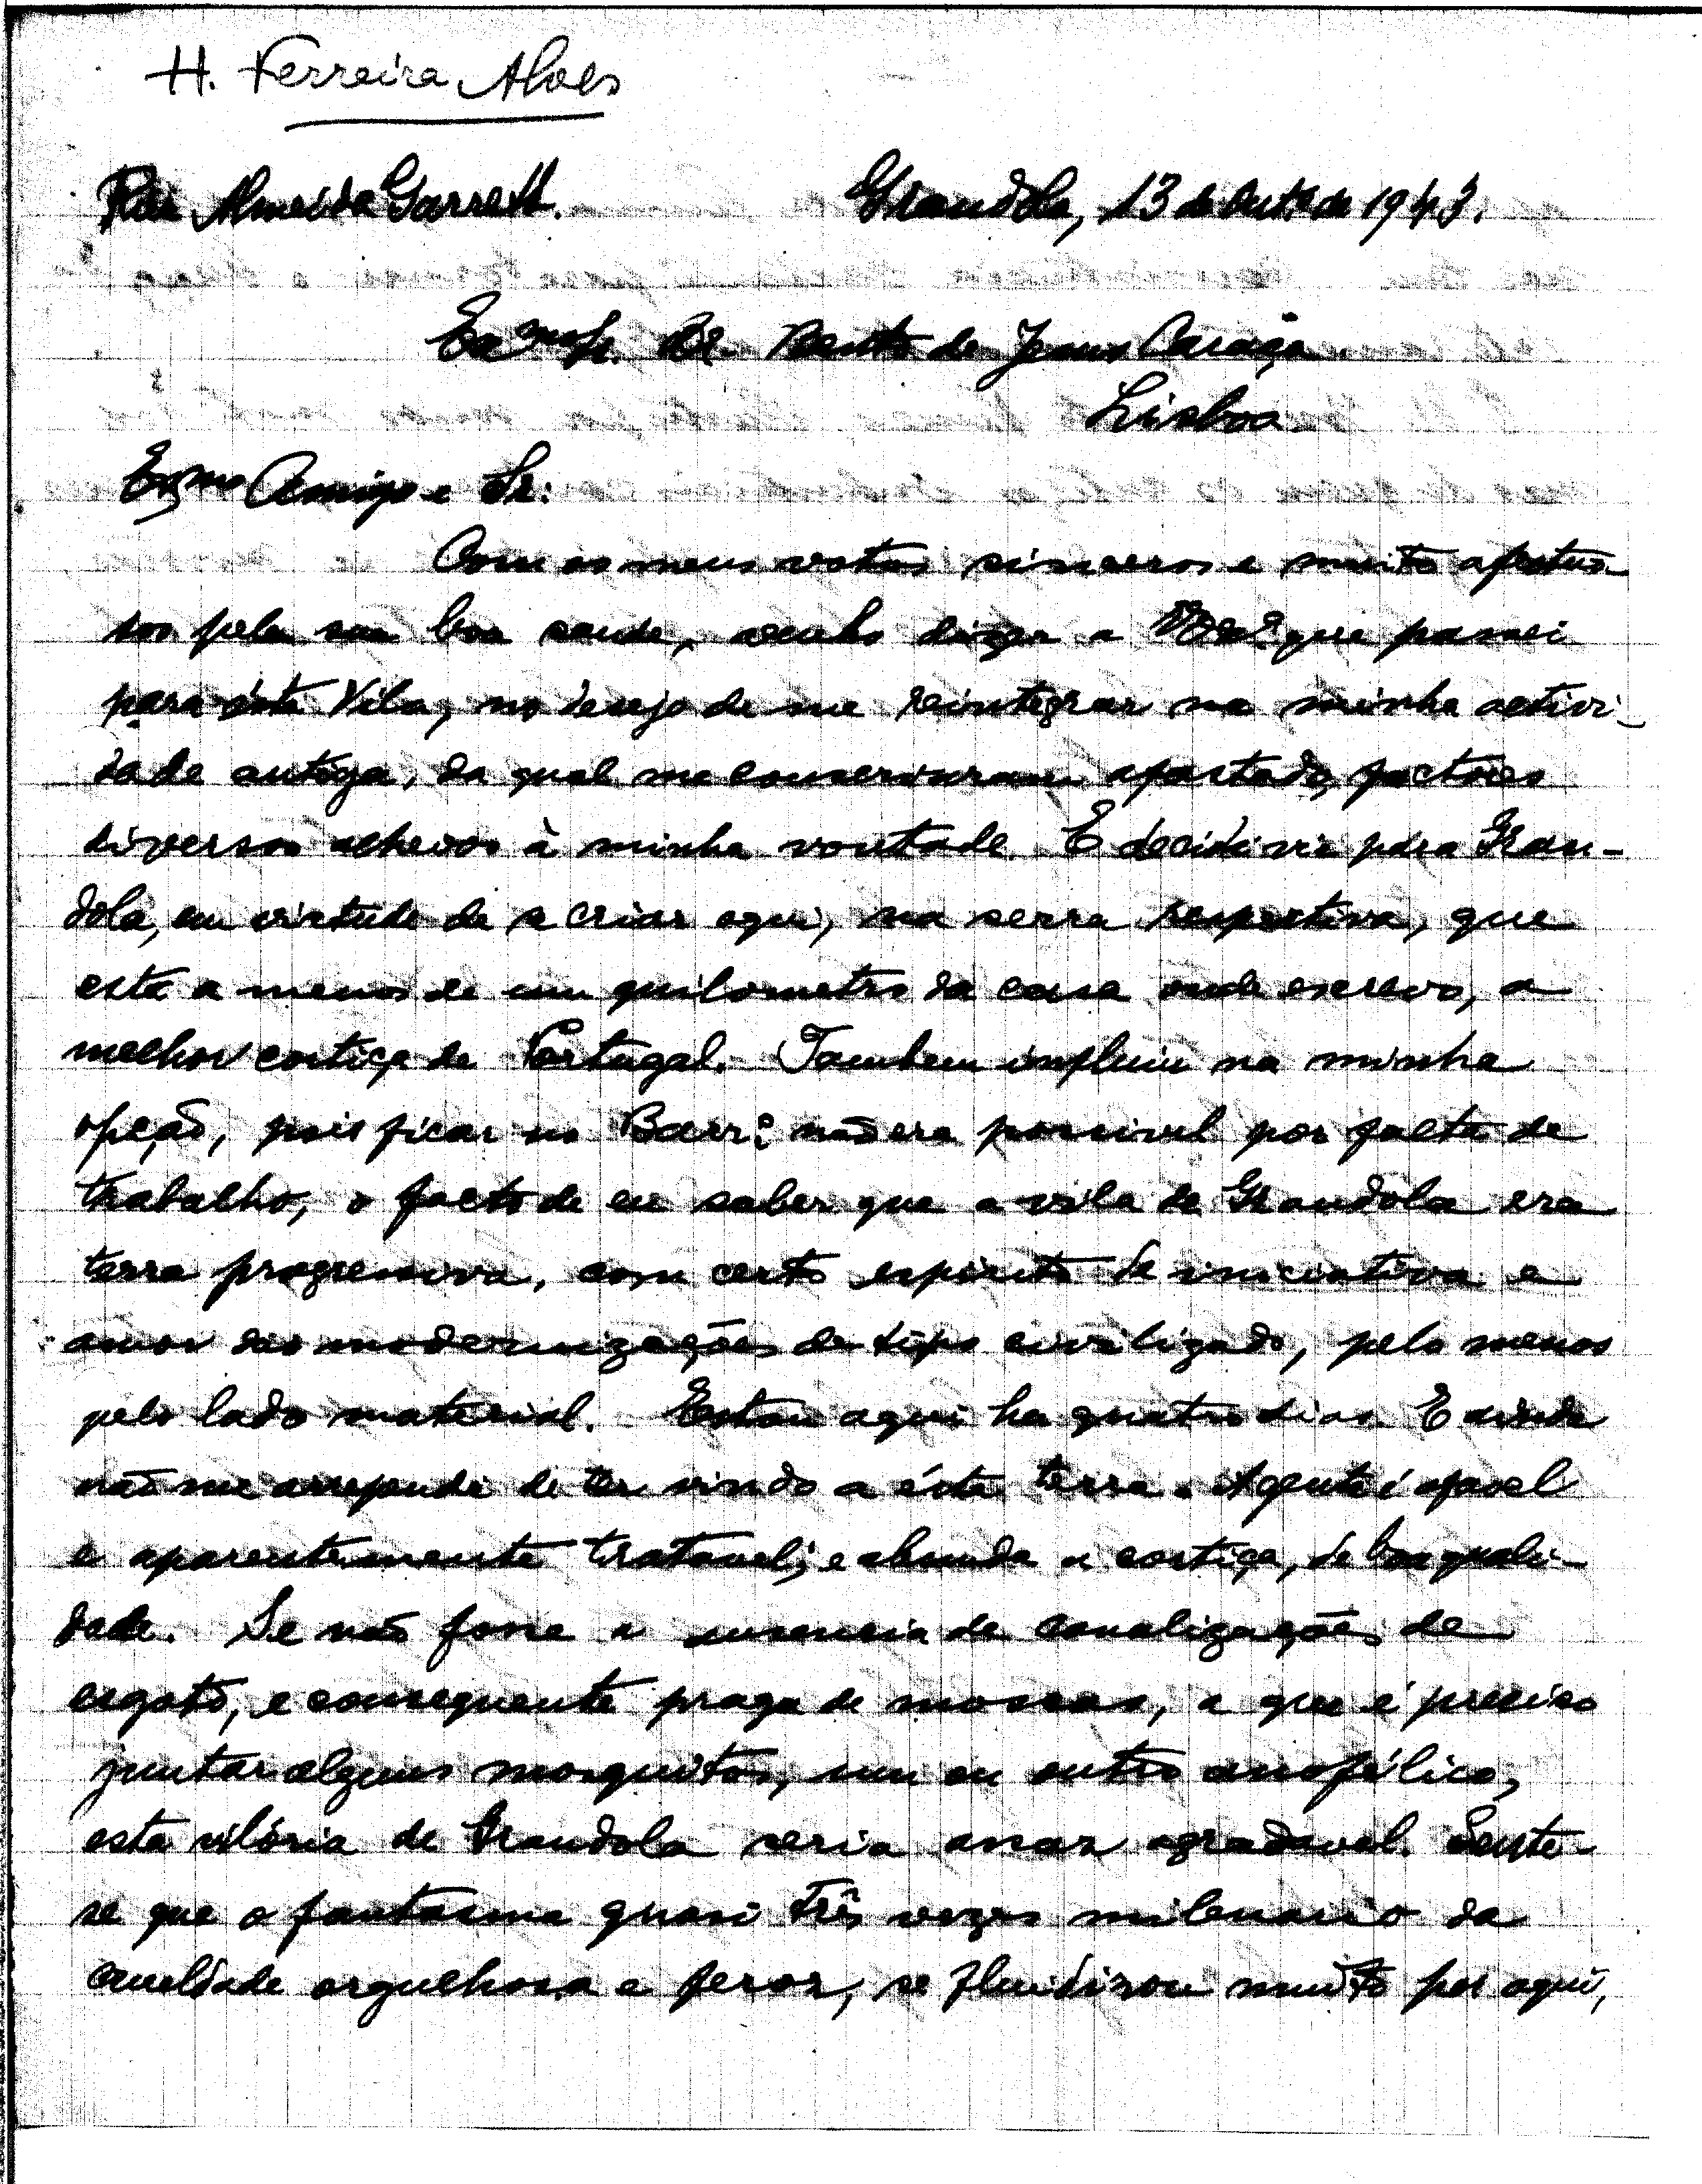 H. Ferreira Alves
Rua Almeida Garrett. Grandola, 13 de Outº de 1943.
Exmº Sr. Dr. Bento de Jesus Caraça.
Lisboa
Exmº Amigo e Sr:
Com os meus votos sinceros e muito afectuo-
sos pela sua boa saude, venho dizer a V. Exª que passei
para ésta Vila, no desejo de me reintegrar na minha activi-
dade antiga, da qual me conservaram afastado, factores
diversos alheios à minha vontade. E decidi vir para Gran-
dola, em virtude de se criar aqui, na serra respectiva, que
está a menos de um quilometro da casa onde escrevo, a
melhor cortiça de Portugal. Tambem influiu na minha
opção, pois ficar no Barrº não era possivel por falta de
trabalho, o facto de eu saber que a vila de Grandola era
terra progressiva, com certo espirito de iniciativa e
amor das modernizações de tipo civilizado, pelo menos
pelo lado material. Estou aqui ha quatro dias. E ainda
não me arrependi de ter vindo a ésta terra. A gente é afavel
e aparentemente tratavel; e abunda a cortiça, de boa quali-
dade. Se não fosse a ausencia de canalizações de
esgoto, e consequente praga de moscas, a que é preciso
juntar alguns mosquitos, um ou outro anofélico,
esta vilória de Grandola seria assaz agradavel. Sente-
se que o fantasma quasi três vezes milenario da
crueldade orgulhosa e feroz, se fluidizou muito por aqui,